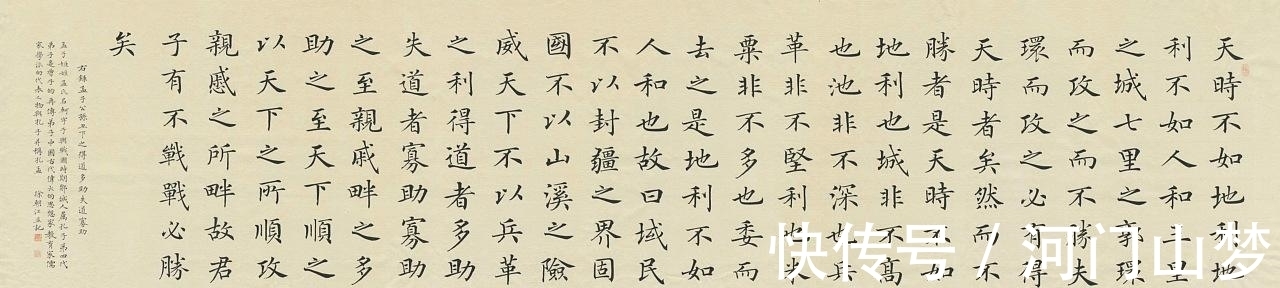 天時不如地利地
利不如人和三里
之城七里之郭環
而攻之而不勝夫
環而攻之必有得
天時者矣然而不
勝者是天時不如
地利也城非不高
也池非不深也兵
革非不堅利也米
粟非不多也委而
去之是地利不如
人和也故曰域民
不以封疆之界固
國不以山溪之險
威天下不以兵革
之利得道者多助
失道者寡助寡助
之至親戚畔之多
助之至天下順之
以天下之所順攻
親戚之所畔故君
子有不戰戰必勝
矣
右錄孟子公孫丑下之得道多助失道寡助
孟子姬姓孟氏名軻字子輿戰國時期鄒城人屬孔子第四代
弟子是曾子的再傳弟子中國古代偉大的思想家教育家儒
家學派的代表人物與孔子并稱孔孟 徐朝江並記
快传号 / 河门山梦